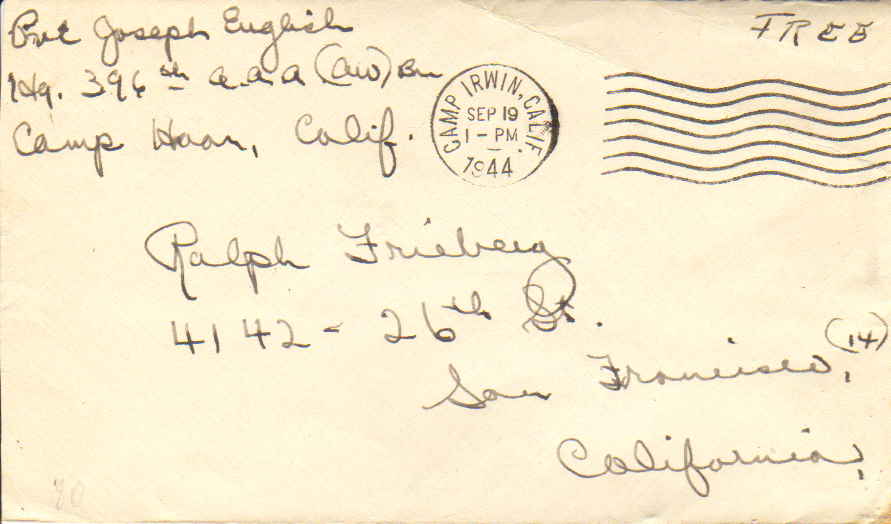 Pvt Joseph English
Hq. 396th a.a.a (aw) Bn
Camp Haan, Calif.
FREE
CAMP IRWIN, CALIF.
SEP 19
1 - PM
1944
Ralph Frieberg
4142 - 26th St.
San Francisco, (14)
California,